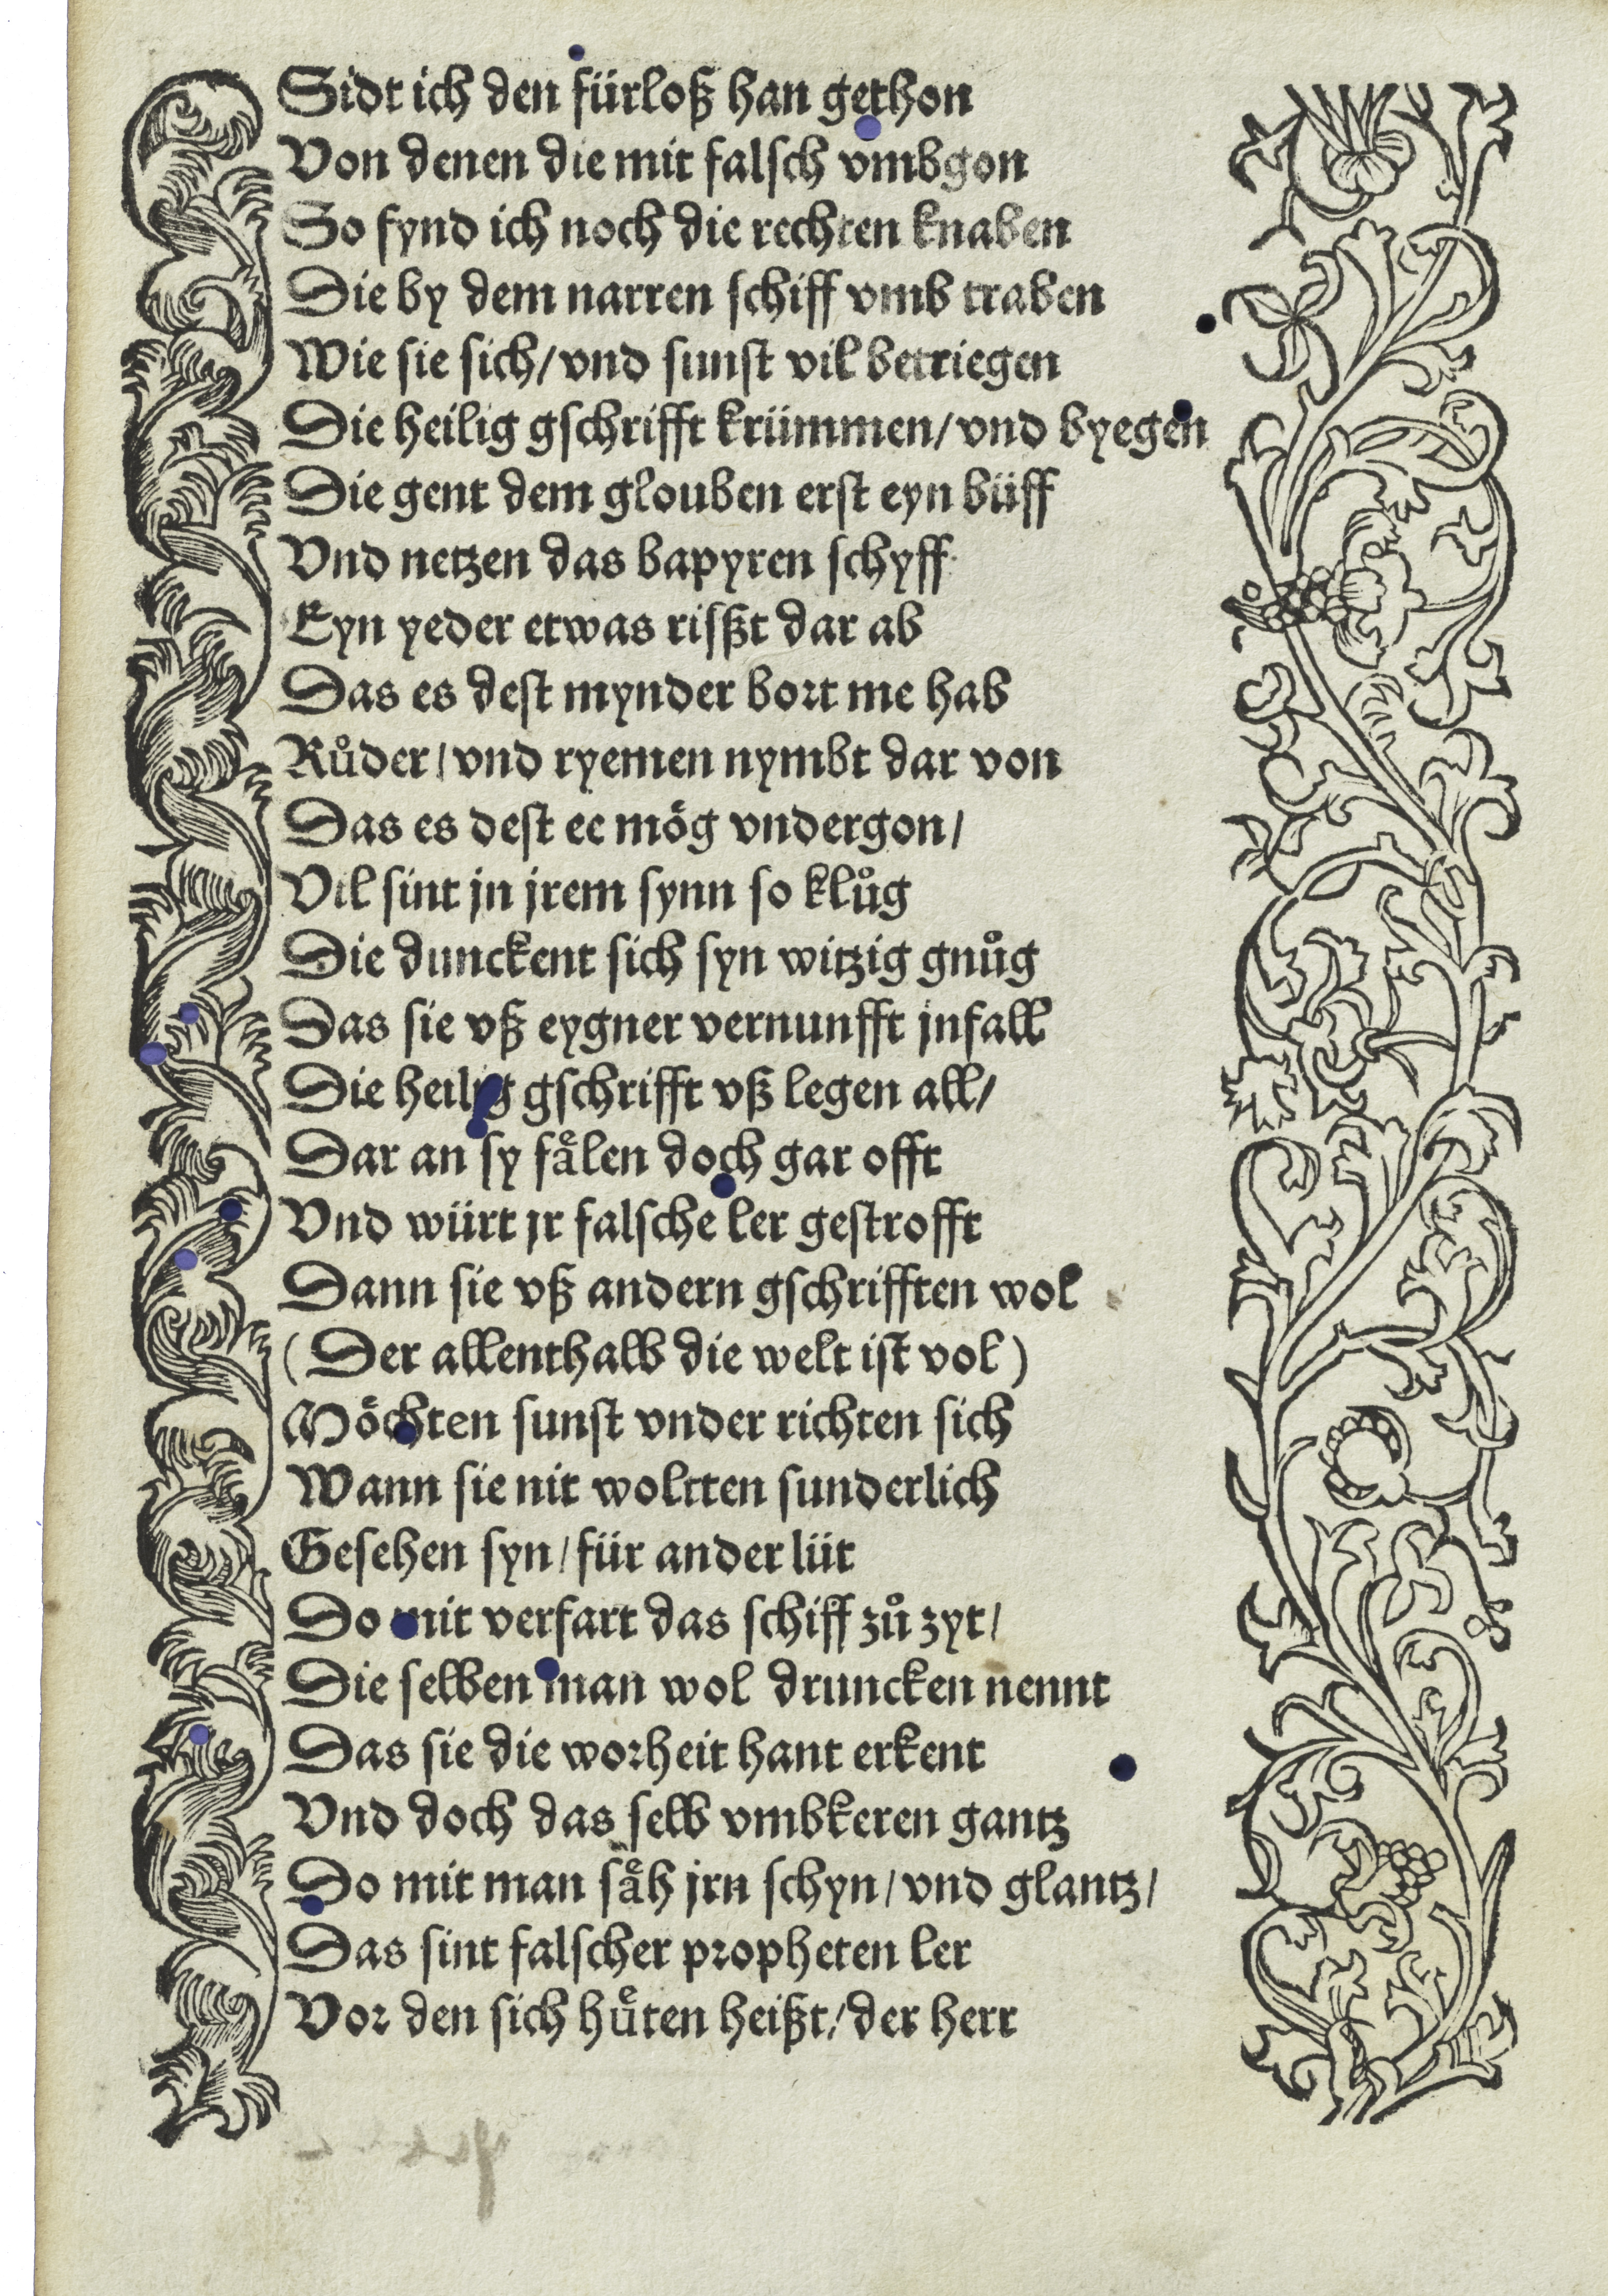 Sidt ich den fürloß han gethon
Von denen die mit falsch vmbgon
So fynd ich noch die rechten knaben
Die by dem narren schiff vmb traben
Wie sie sich/ vnd sunst vil betriegen
Die heilig gschrifft krümmen/ vnd byegen
Die gent dem glouben erst eyn büff
Vnd netzen das bapyren schyff
Eyn yeder etwas rißt dar ab
Das es dest mynder bort me hab
Růder/ vnd ryemen nymbt dar von
Das es dest ee mög vndergon/
Vil sint jn jrem synn so klůg
Die dunckent sich syn witzig gnůg
Das sie vß eygner vernunfft jnfall
Die heilig gschrifft vß legen all/
Dar an sy faͤlen doch gar offt
Vnd würt jr falsche ler gestrofft
Dann sie vß andern gschrifften wol
(Der allenthalb die welt ist vol)
Möchten sunst vnder richten sich
Wann sie nit woltten sunderlich
Gesehen syn/ für ander lüt
Do mit verfart das schiff zů zyt/
Die selben man wol druncken nennt
Das sie die worheit hant erkent
Vnd doch das selb vmbkeren gantz
Do mit man saͤh jrn schyn/ vnd glantz/
Das sint falscher propheten ler
Vor den sich huͤten heißt/ der herr